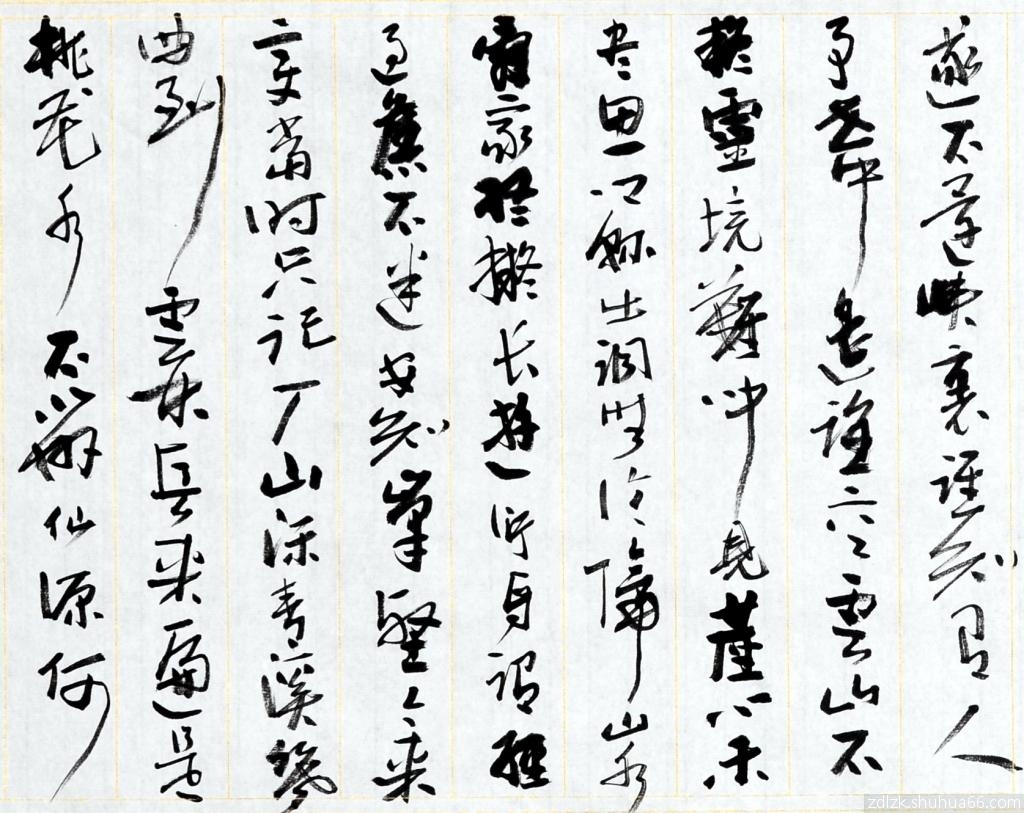 遂不還峡裏誰知有人
事世中遥望空雲山不
疑靈境難聞見塵心未
尽思鄉縣出洞無論隔山水
辭家終擬长遊衍自謂經
過舊不迷安知峯壑今来
变當时只記入山深青溪幾
曲到雲林春来遍是
桃花水不辨仙源何
zdlzk.shuhua66.com